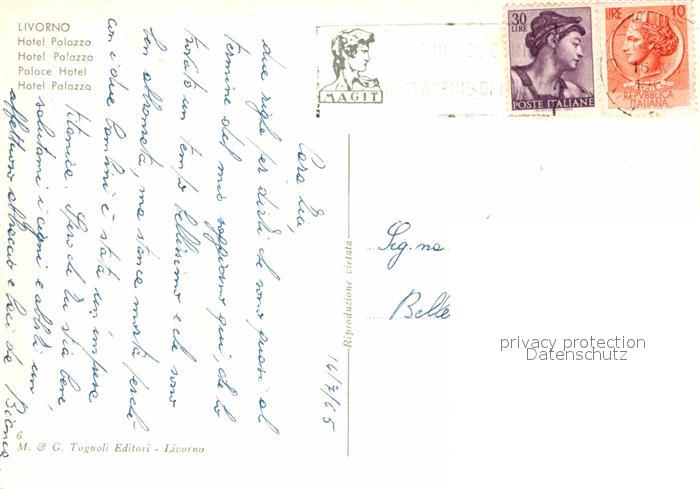 LIVORNO
Hotel Palazzo
Hotel Palazzo
Palace Hotel
Hotel Palazzo
MAGIT
30
LIRE
POSTE ITALIANE
LIRE 10
REPVBBLICA
ITALIANA
Cara Lia,
due righe per dirti che sono quasi al
termine del mio soggiorno qui, che ho
trovato un tempo bellissimo e che sono
ben abbronzata, ma stanca morta perchè
con i due bambini è stata un'impresa
titanica. Spero che tu stia bene,
salutami i cugini e abbiti un
affettuoso abbraccio e baci da Bianca
16/7/65
Riproduzione vietata
Sig.na
Bella
privacy protection
Datenschutz
6
M. & G. Tognoli Editori - Livorno